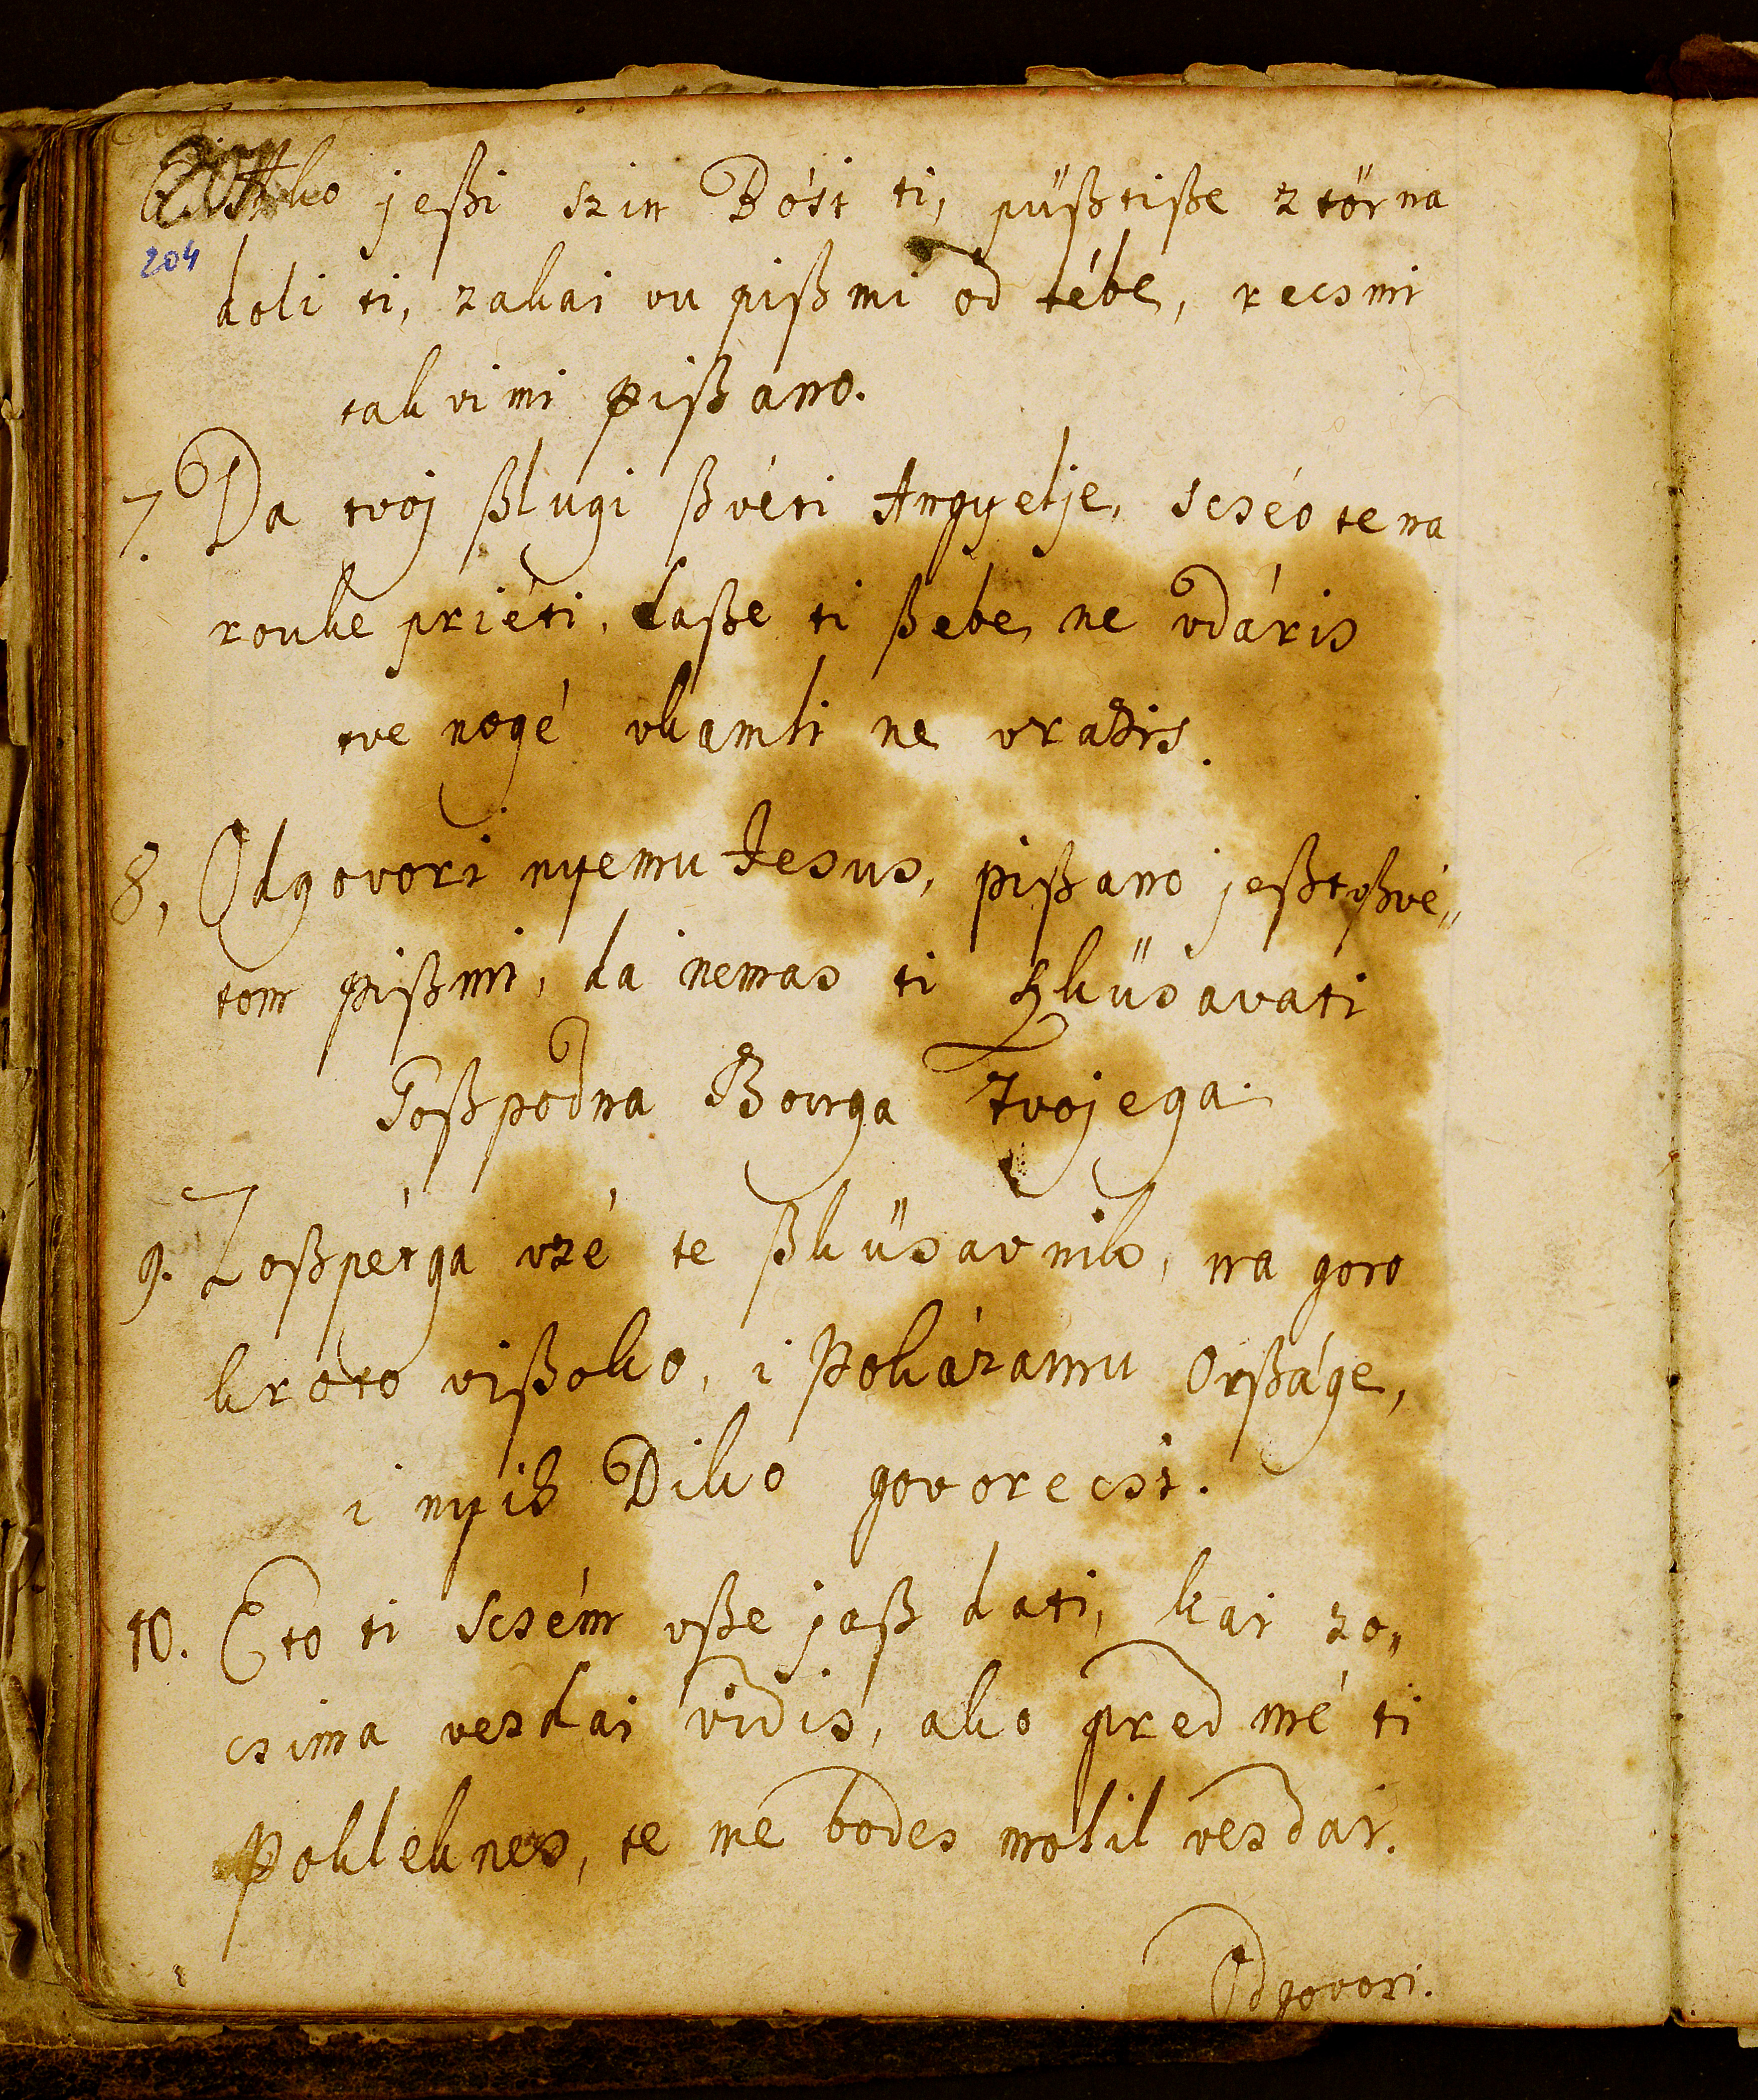 6. Ako jeßi szin Bósi ti, püßtiße z törna
204
doli ti, zakai vu pißmi od tébe, recsmi
takvimi pißano.
7. Da tvoj ßlugi ßvéti Angyelje, scséo te na
rouke priéti, daße ti ßebe ne vdáris
tve nogé vkamli ne vrazis.
8, Odgovori nyemu Jesus, pißano jeßt vßvé„
tom pißmi, da nemas ti ßküsavati
Goßpodna Bouga Tvojega.
9. Zoßpétga vzé te ßküsavnik, na goro
kroto vißoko, i Pokázamu Orßáge,
i nyih Diko govorecsi.
10. Eto ti scsém vße jaß dati, kai zo„
csima vezdai vidis, ako pred mé ti
Pokleknes, te me bodes molil vezdai.
Odgovori.